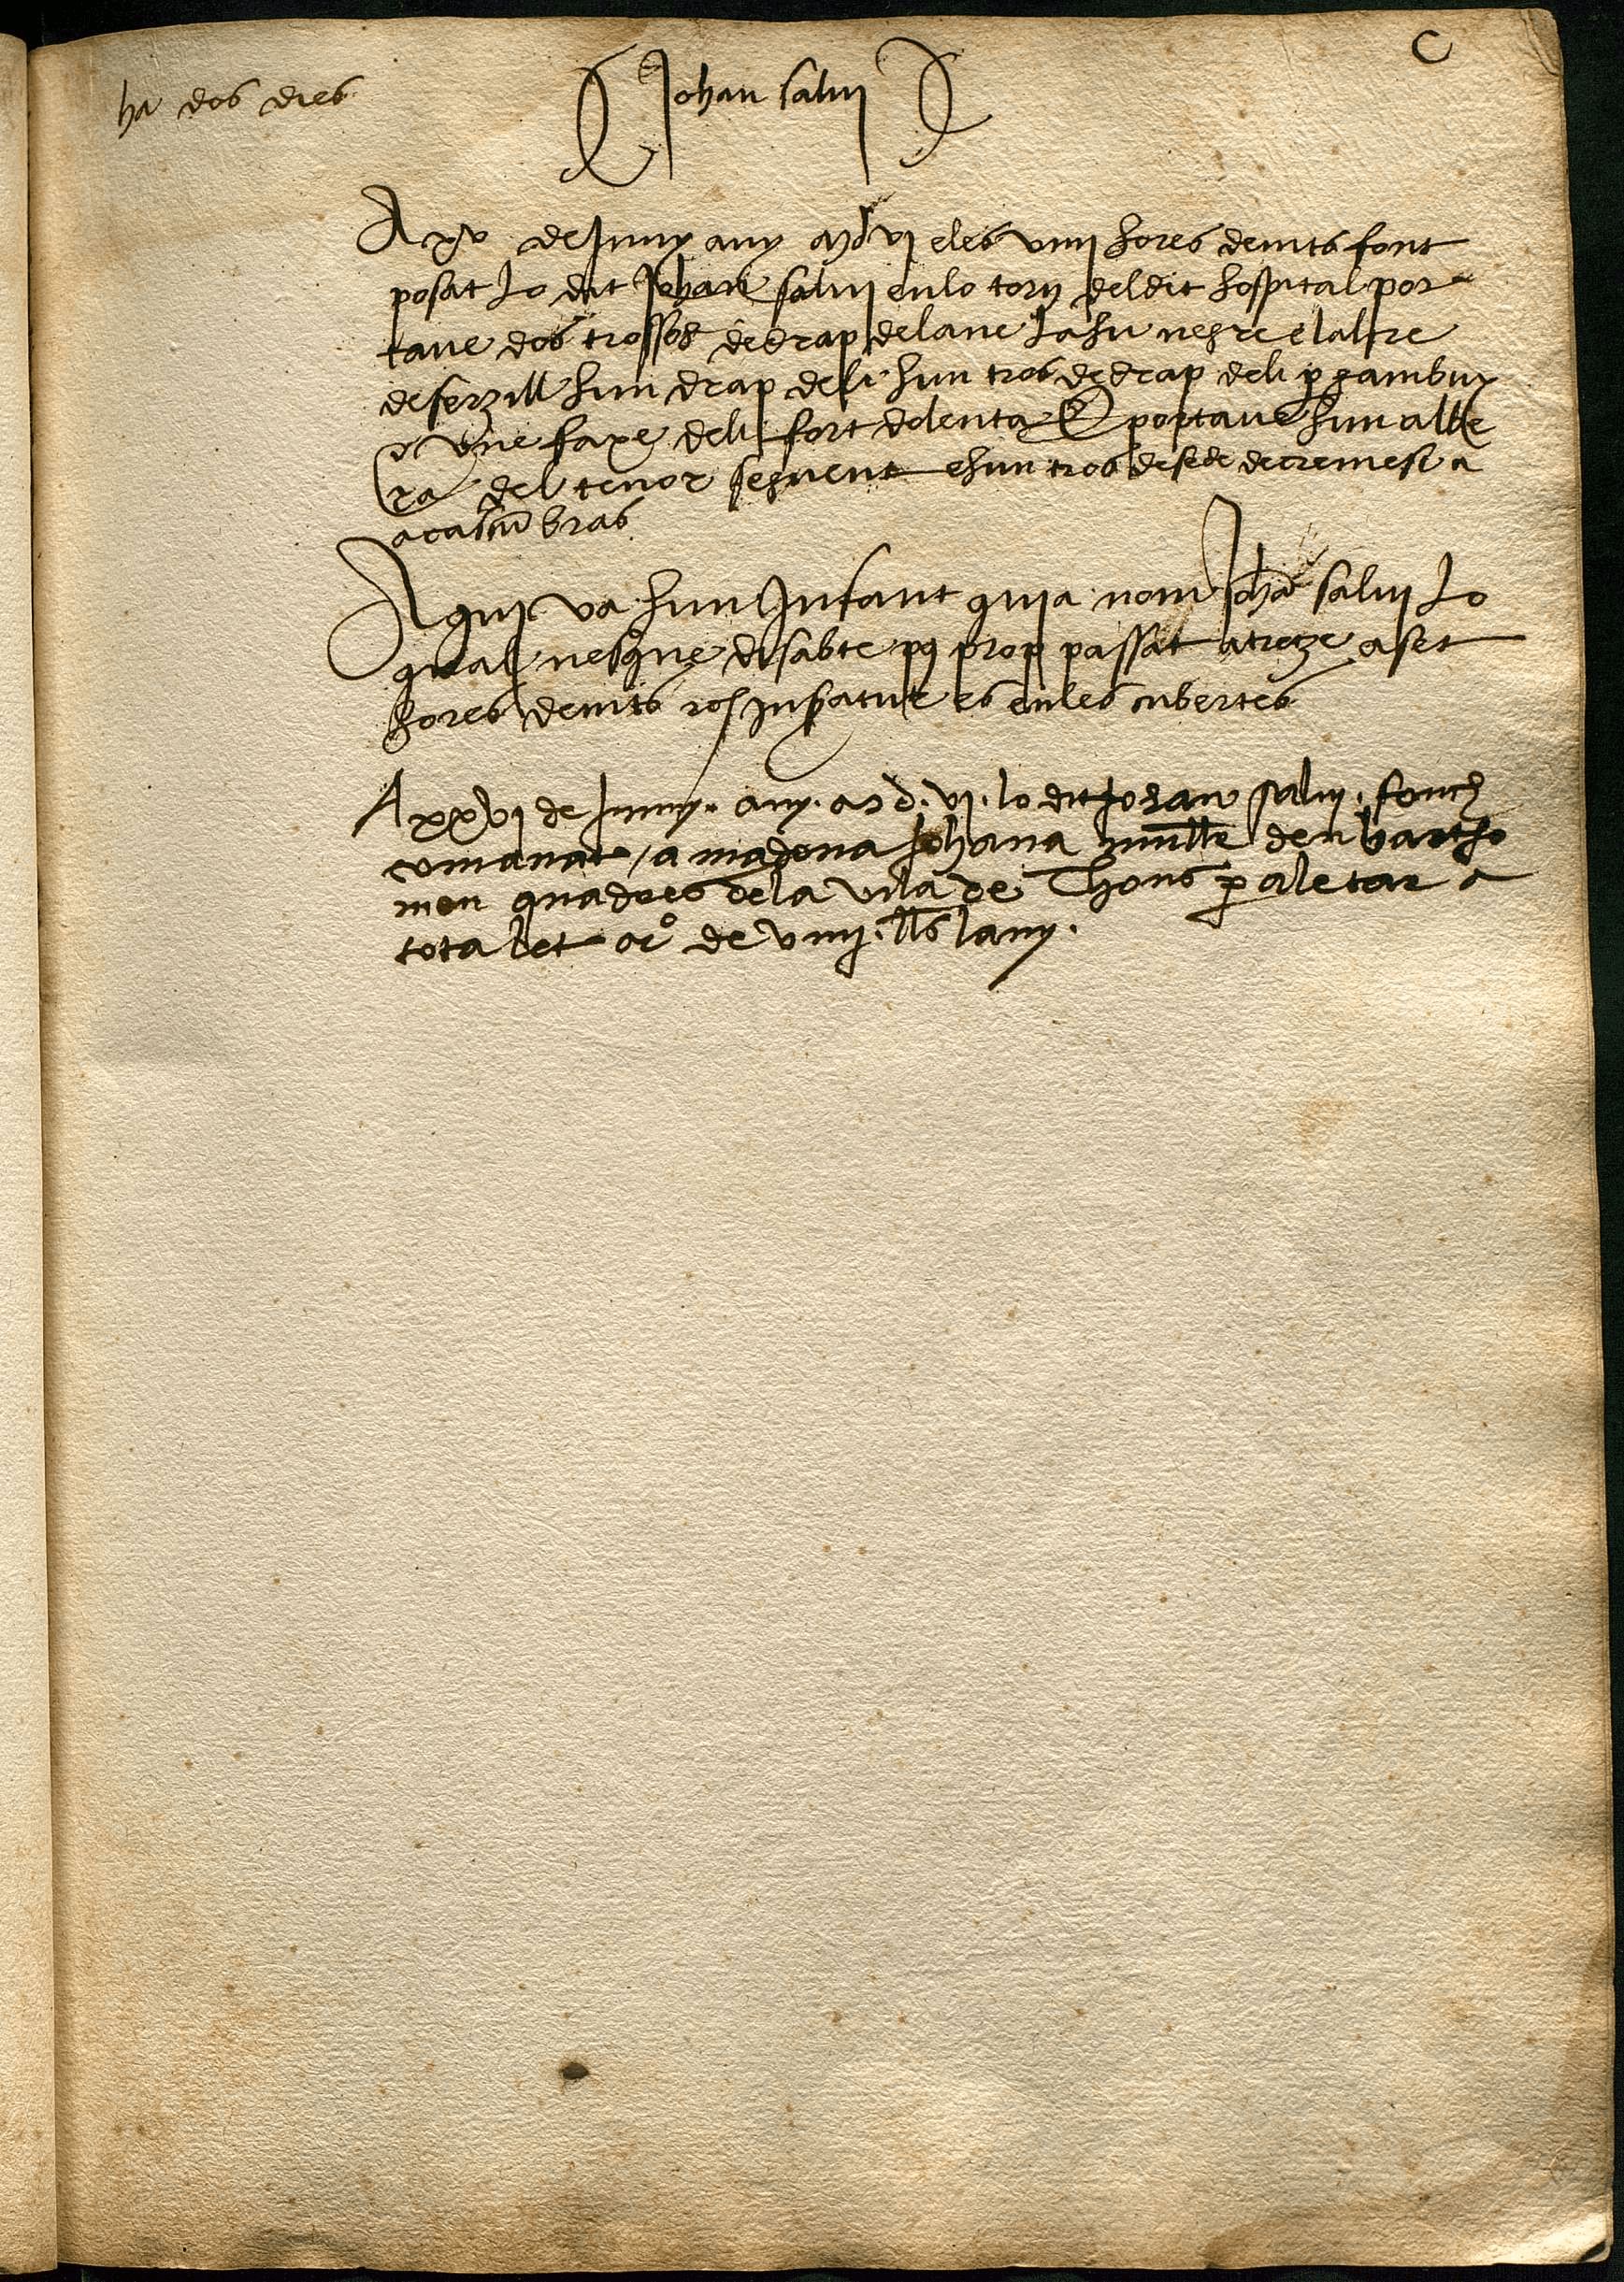 C
ha dos dies
Johan salvj
A xv de Juny any md vj eles viiij hores de nits font
posat Lo dit Johan salvj en lo torn del dit hospital por
tave dos trossos de drap de lane La hu negre e laltre
de serzill hun drap de li hun tros de drap de li p gambux
e vne faxe de li fort dolenta E portave hun alba
ra del tenor seguent e hun tros de sede de cremesi a
a cascũ bras
Aquj va hun Jnfant quj a nom Johã salvj Lo
qual nesque disabte pus prop passat a tretze a set
hores de nits es en les cubertes
A xxvj de Juny. any. m d. vj. lo dit Johan salvj. fonch
comanat / a madona Johana mullr den bartho
meu quadres de la vila de Thous p aletar a
tota let a rº de viiij. lls lany.